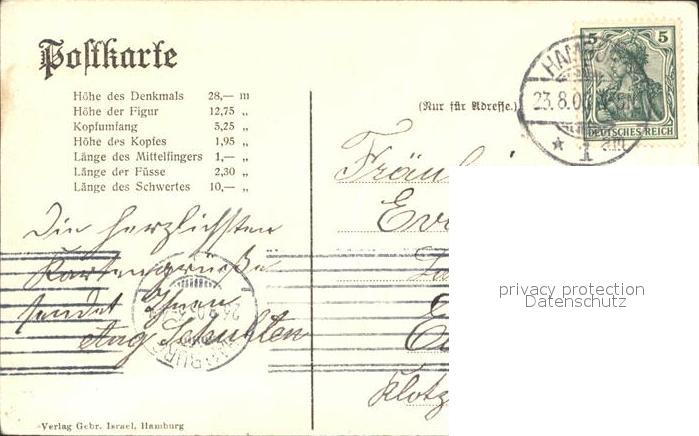 Postkarte
Höhe des Denkmals 28,— m
Höhe der Figur 12,75 „
Kopfumfang 5,25 „
Höhe des Kopfes 1,95 „
Länge des Mittelfingers 1,— „
Länge der Füsse 2,30 „
Länge des Schwertes 10,— „
(Nur für Adresse.)
5 5
DEUTSCHES REICH
HAMBURG
23.8.06
* 1
Die herzlichsten
Kartengrüße
sendet Ihnen
Aug Schulten
Fräul
Ev
Klotz
privacy protection
Datenschutz
Verlag Gebr. Israel, Hamburg